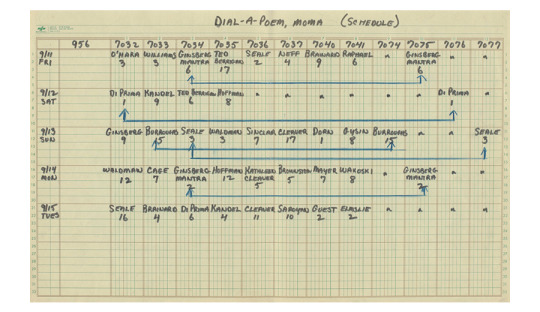 DIAL-A-POEM, MOMA (SCHEDULE)
956 7032 7033 7034 7035 7036 7037 7040 7041 7074 7075 7076 7077
9/11 O'HARA WILLIAMS GINSBERG TED SEALE NEFF BRAINARD RAPHAEL " GINSBERG " "
FRI 3 3 MANTRA BERRIGAN 2 4 9 6 MANTRA
6 17 6
9/12 DI PRIMA KANDEL TED BERRIGAN HOFFMAN " " " " " " DI PRIMA "
SAT 1 9 6 8 1
9/13 GINSBERG BURROUGHS SEALE WALDMAN SINCLAIR CLEAVER DORN GYSIN BURROUGHS " " SEALE
SUN 9 15 3 3 7 17 1 8 15 3
9/14 WALDMAN CAGE GINSBERG HOFFMAN KATHLEEN BROWNSTEIN MAYER WAKOSKI " GINSBERG " "
MON 12 7 MANTRA 12 CLEAVER 5 7 8 MANTRA
2 5 2
9/15 SEALE BRAINARD DI PRIMA KANDEL CLEAVER SAROYAN GUEST ELMSLIE " " " "
TUES 16 4 6 4 11 10 2 2